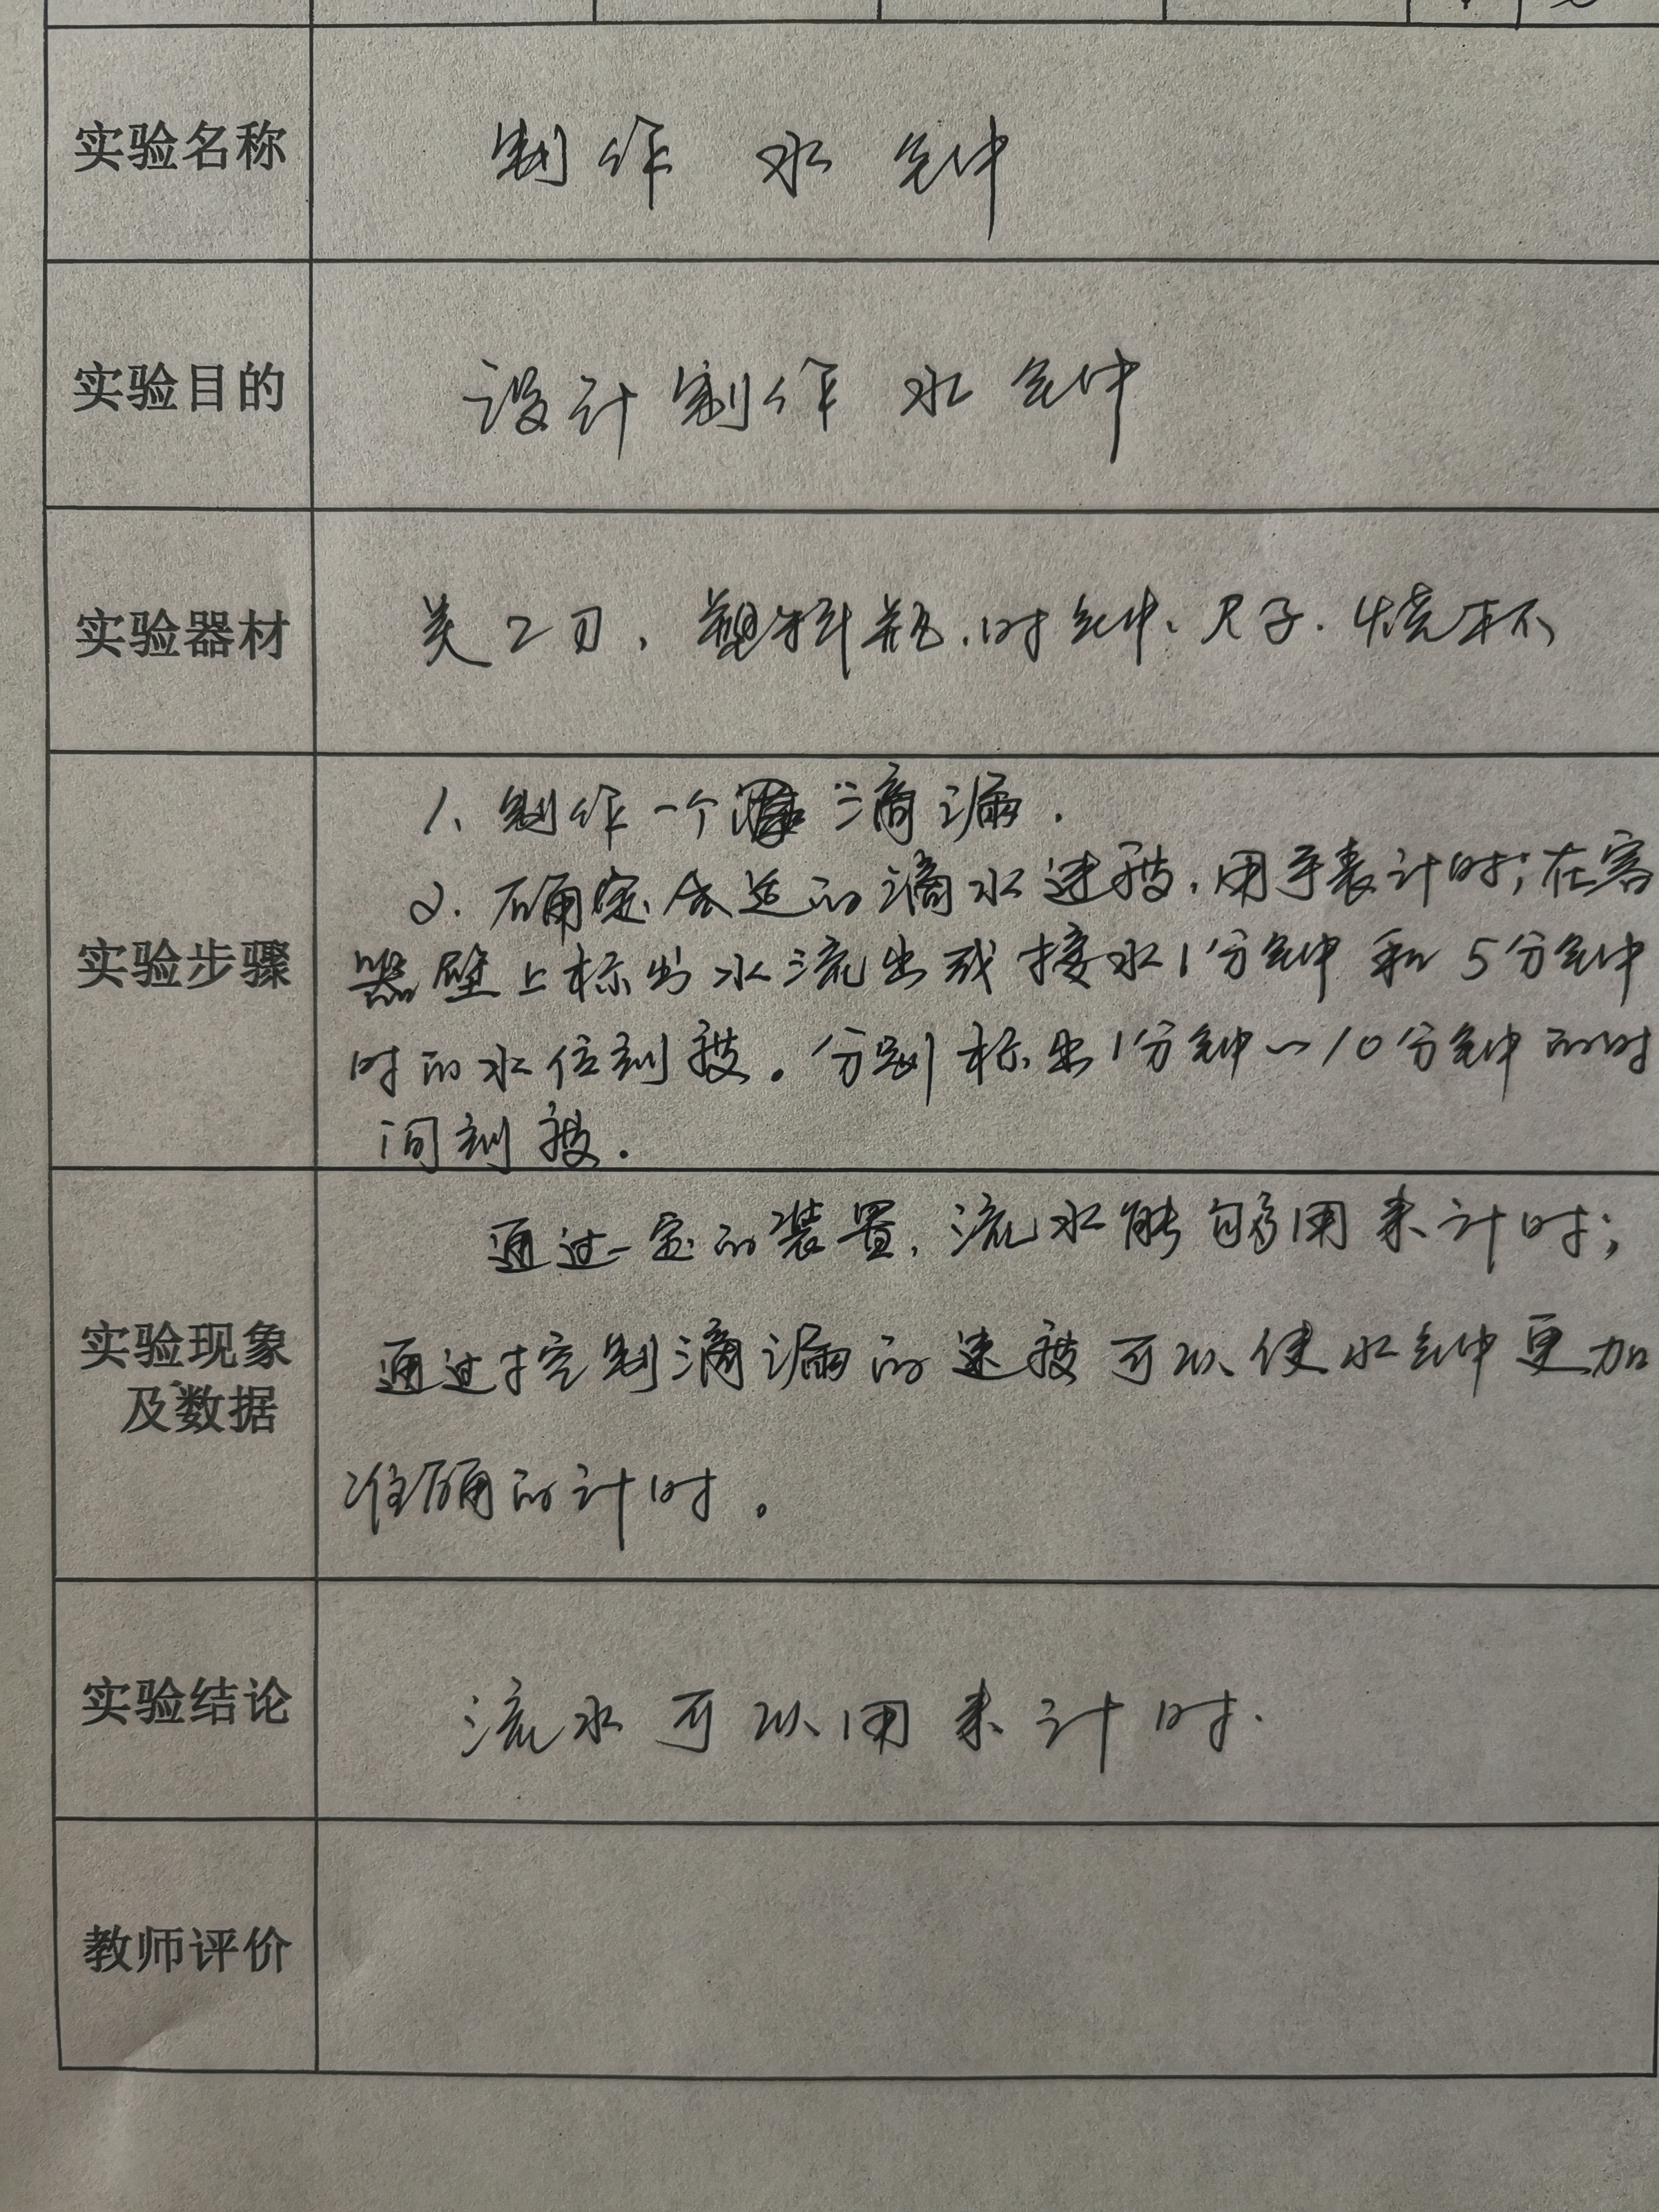 实验名称
制作 水 钟
实验目的
设计制作 水 钟
实验器材
美工刀、塑料瓶、时钟、尺子、烧杯
实验步骤
1、制作一个滴漏.
2. 确定合适的滴水速度,用手表计时;在容
器壁上标出水流出或接水1分钟和5分钟
时的水位刻度。分别标出1分钟~10分钟的时
间刻度.
实验现象
及数据
通过一定的装置,流水能够用来计时;
通过控制滴漏的速度可以使水钟更加
准确的计时。
实验结论
流水可以用来计时.
教师评价